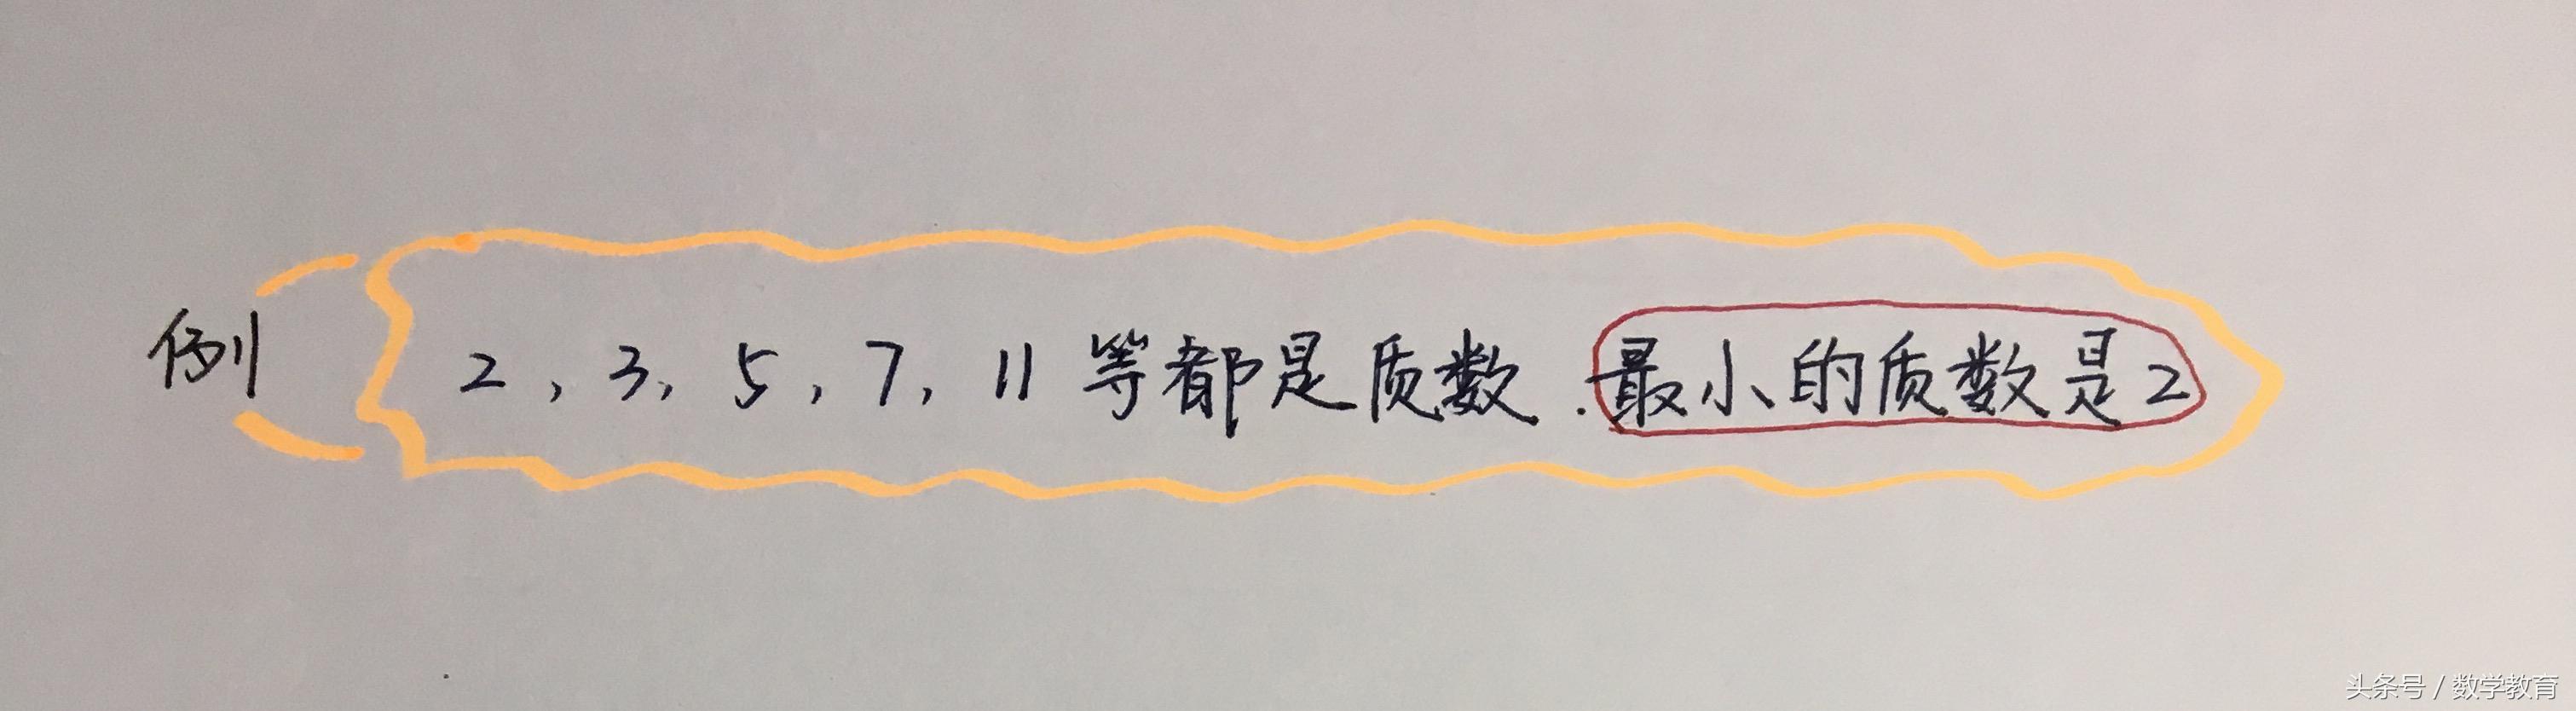 例 2，3，5，7，11 等都是质数．最小的质数是2
头条号 / 数学教育